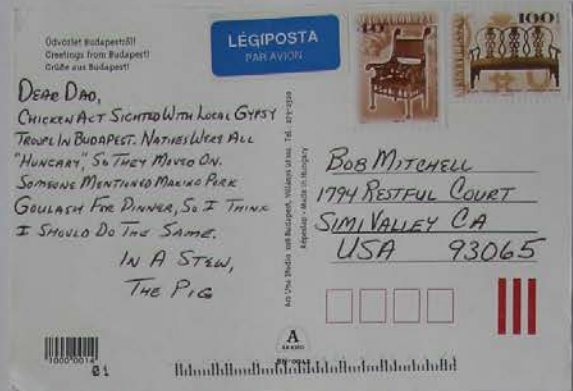 Üdvözlet Budapestről!
Greetings from Budapest!
Grüße aus Budapest!
LÉGIPOSTA
PAR AVION
40
100
DEAR DAD,
CHICKEN ACT SIGHTED WITH LOCAL GYPSY
TROUPE IN BUDAPEST. NATIVES WERE ALL
"HUNGARY", SO THEY MOVED ON.
SOMEONE MENTIONED MAKING PORK
GOULASH FOR DINNER, SO I THINK
I SHOULD DO THE SAME.
IN A STEW,
THE PIG
Képeslap • Made in Hungary
BOB MITCHELL
1794 RESTFUL COURT
SIMI VALLEY CA
USA 93065
A
01